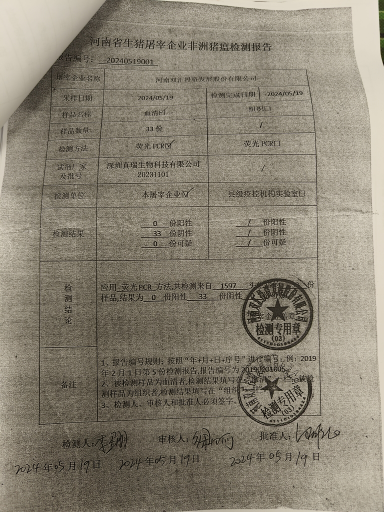 河南省生猪屠宰企业非洲猪瘟检测报告
报告编号: 20240519001
屠宰企业名称
采样日期 2024/05/19 检测完成日期 2024/05/19
样品名称 血清□ 组织□
样品数量 33份 /
检测方法 荧光PCR☑ 荧光PCR□
试剂厂家及批号 深圳真瑞生物科技有限公司 /
20231101
检测单位 本屠宰企业☑ 县级疫控机构实验室□
检测结果
0 份阳性 / 份阳性
33 份阴性 / 份阴性
0 份可疑 / 份可疑
检测结论
应用 荧光PCR 方法,共检测来自 1597 份
样品,结果为 0 份阳性 33 份阴性
检测专用章
(03)
备注
1、报告编号规则:按照“年+月+日+序号”进行编号,例:2019
年2月1日第5份检测报告,报告编号为20190201005
2、被检测样品为血清者,检测结果填写在
测样品为组织者,检测结果填写在“组织
3、检测人、审核人和批准人必须签字。
检测专用章
(03)
检测人: 审核人: 批准人:
2024年05月19日 2024年05月19日 2024年05月19日